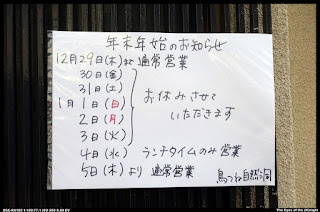 年末年始のお知らせ
12月29日(木)まで 通常営業
30日(金)
31日(土)
1月1日(日)
2日(月)
3日(火)
お休みさせて
いただきます
4日(水) ランチタイムのみ営業
5日(木)より 通常営業
The Eyes of the Jikingin